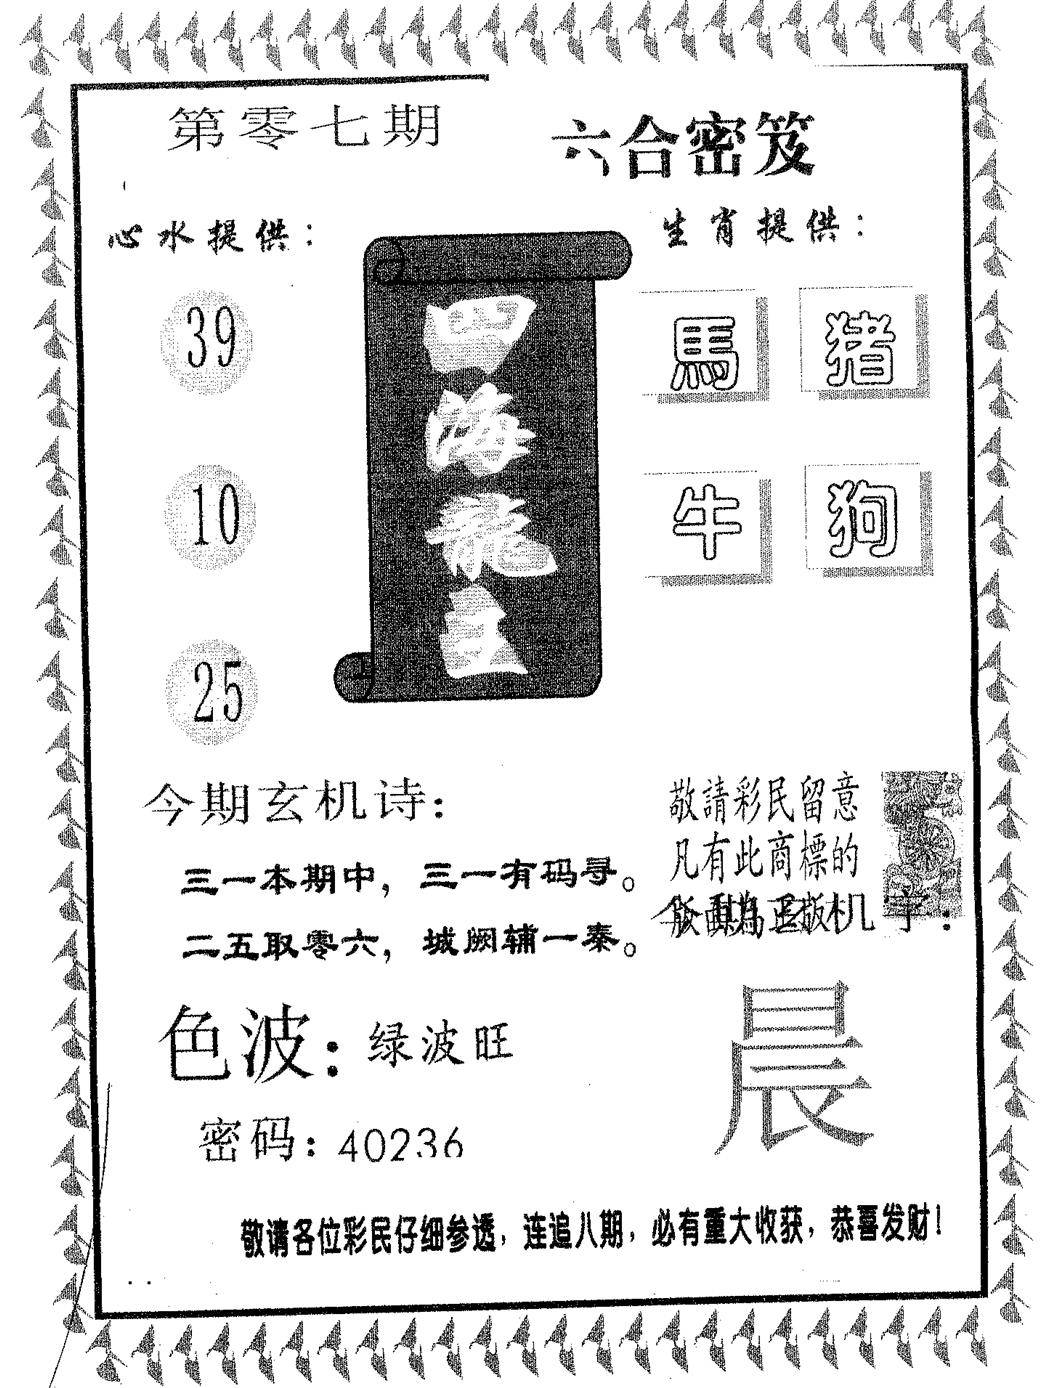 第零七期
六合密笈
心水提供：
生肖提供：
39
10
25
四海龍王
馬 猪
牛 狗
今期玄机诗：
三一本期中，三一有码寻。
二五取零六，城阙辅一秦。
敬請彩民留意
凡有此商標的
版面為正版
机字：
色波：绿波旺
晨
密码：40236
敬请各位彩民仔细参透，连追八期，必有重大收获，恭喜发财！